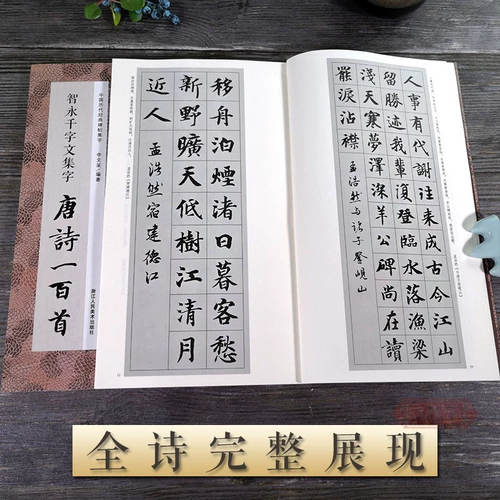 人事有代謝往来成古今江山
留勝迹我輩復登臨水落漁梁
淺天寒夢澤深羊公碑尚在讀
罷淚沾襟 孟浩然与諸子登峴山
移舟泊煙渚日暮客愁
新野曠天低樹江清月
近人 孟浩然宿建德江
中国历代经典碑帖集字
智永千字文集字
唐詩一百首
浙江人民美术出版社
全诗完整展现